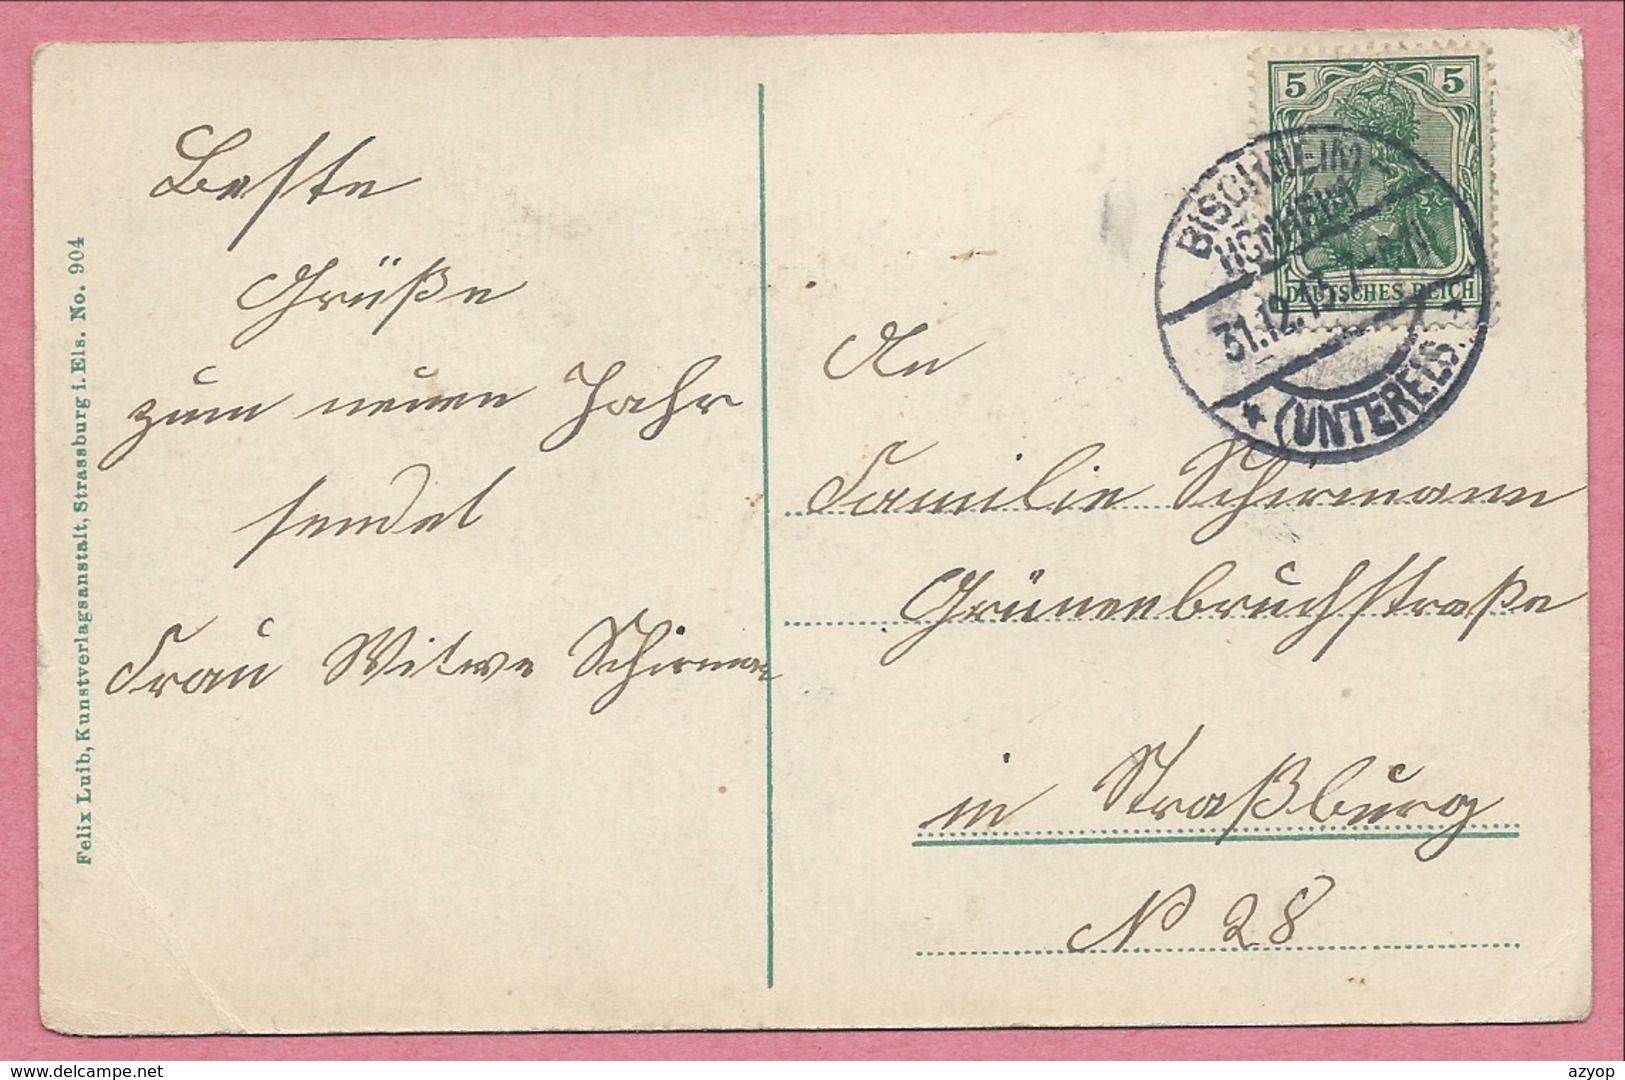 Beste
Grüße
zum neuen Jahr
sendet
Frau Witwe Schirmann
Felix Luib, Kunstverlagsanstalt, Strassburg i. Els. No. 904
5 5
DEUTSCHES REICH
BISCHHEIM-
HÖNHEIM
31.12.13.7-8N
* (UNTERELS. *
An
Familie Schirmann
Grünenbruchstraße
in Straßburg
N° 28
www.delcampe.net
azyop